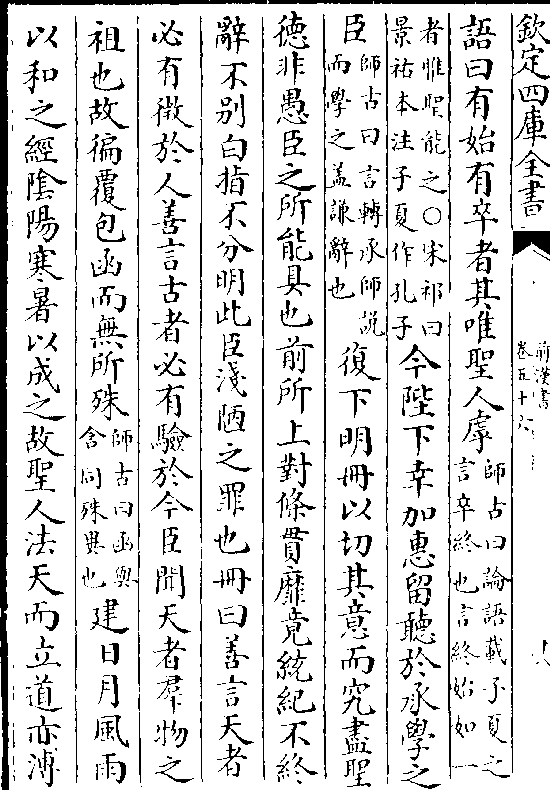 欽定四庫全書
前漢書
卷五十六
語曰有始有卒者其唯聖人虖師古曰論語載子夏之言卒終也言終始如一
者惟聖能之○宋祁曰景祐本注子夏作孔子今陛下幸加惠留聽於承學之
臣師古曰言轉承師說而學之蓋謙辭也復下明冊以切其意而究盡聖
德非愚臣之所能具也前所上對條貫靡竟統紀不終
辭不别白指不分明此臣淺陋之罪也冊曰善言天者
必有徴於人善言古者必有驗於今臣聞天者羣物之
祖也故徧覆包函而無所殊師古曰函與含同殊異也建日月風雨
以和之經隂陽寒暑以成之故聖人法天而立道亦溥